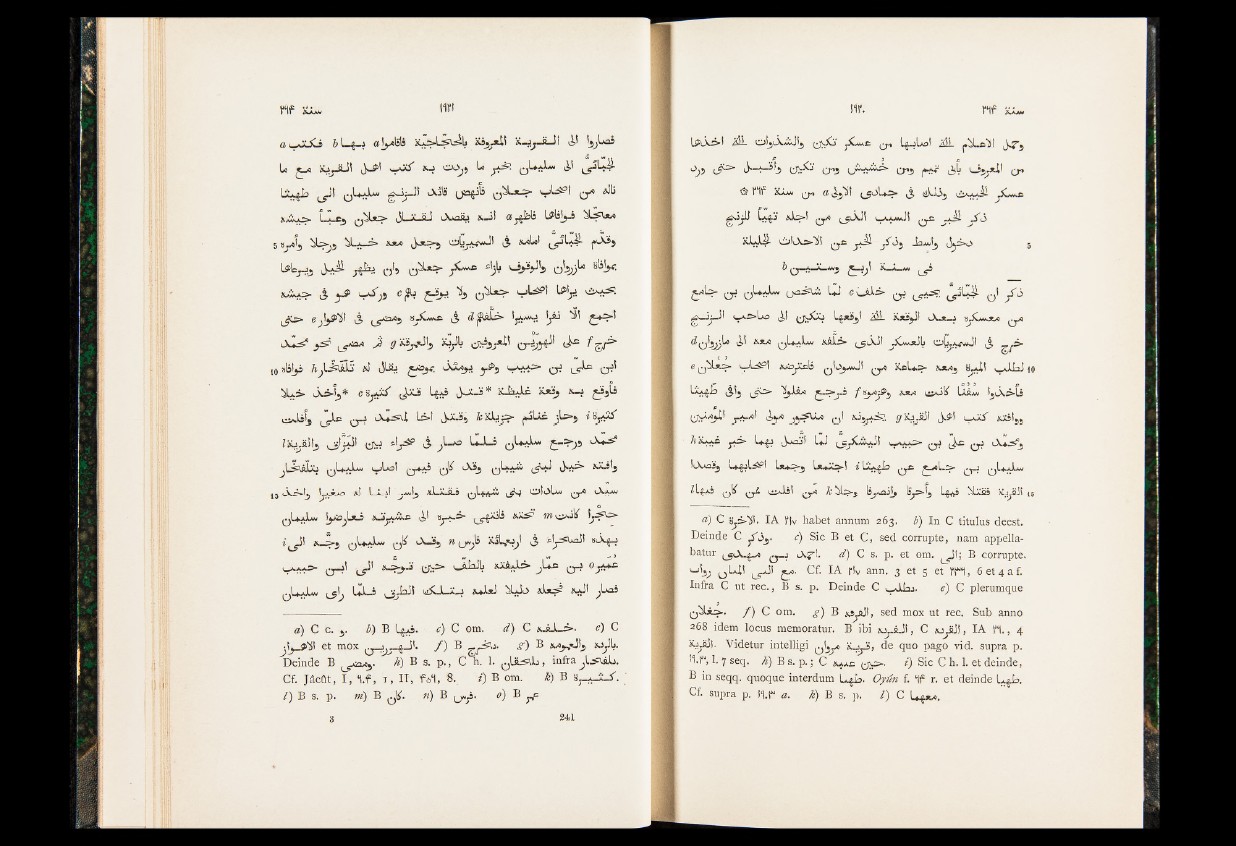 سنة ٢٦٤
١٩٢٠
وحمل الاعلام الله اصابها من عسكر تكين والشذوات الله اخذها
من المعروف بأبى تميم ومن خشيش ومن تكين وأقبل حتى ورد
عسكر الخبيث وذلك فى جمادى الاولى a من سنة ٢٦٤ ۞
ذكر الخبر عن السبب الذى من اجله تهيّأ للزنج
دخول واسط وذكر الخبر عن الاحداث الجليلة
فى سنة اربع وستين b
ذكر ان الجبّائىّ يحيى بن خلف c لمّا شخص سليمان بن جامع
من معسكره بعد الوقعة الله اوقعها بتكين الى صاحب الزنج
خرج فى السميريّات بالعسكر الذى خلّفه سليمان معه الى مازروان d
لطلب الميرة ومعه جماعة من السودان فاعترضه اصحاب جعلان e
فأخذوا سفنًا كانت معه وهزموه f فرجع مفلولا حتى وافى طهيثا
ووافته كتب اهل القرية g يخبرونه ان منكجور مولى امير المؤمنين
ومحمّد بن علىّ بن حبيب اليشكرىّ لمّا اتّصل بها خبر غيبة h
سليمان بن جامع عن طهيثا i اجتمعا وجمعا اصحابهما وقصدا
القرية فقتلا فيها وأحرقا وانصرفا وجلا k من افلت ممّن كان فيها l
a) C الاخرة. IA ٢١٧ habet annum 263. b) In C titulus deest.
Deinde C ذكر. c) Sic B et C, sed corrupte, nam appella-
batur احمد بن مهدى. d) C s. p. et om. الى; B corrupte.
Cf. IA ٢١٧ ann. 3 et 5 et ٢٣٩, 6 et 4 a f.
Infra C ut rec., B s. p. Deinde C يطلب. e) C plerumque
جغلان. f) C om. g) B القرفه, sed mox ut rec. Sub anno
268 idem locus memoratur. B ibi القريه, C القريه, IA ٢٩., 4
القرية. Videtur intelligi قرية مروان, de quo pago vid. supra p.
١٩.٣, l. 7 seq. h) B s. p.; C حين عميه. i) Sic C h. l. et deinde,
B in seqq. quoque interdum طهثا. Oyún f. ٦٤ r. et deinde طهثا.
Cf. supra p. ١٩.٣ a. k) B s. p. l) C معهما.
١٩٢١
سنة ٢٦٤
فصاروا الى القرية المعروفة بالحجّاجيّة فاقاموا a بها b فكتب a
الجبّائىّ الى سليمان بخبر ما وردت به كتب اهل القرية مع ما
ناله من اصحاب جعلان فأنهض قائد الزنج سليمان الى طهيثا
معجّلا فوافاها فاظهر a انه يقصد لقتال جعلان وعبّأ جيشه
وقدّم الجبّائىّ امامه فى السميريّات وجعل معه خيلا ورجلا وأمره
بموافاة مازروان والوقوف بازاء عسكر جعلان وان يظهر الخيل ويرعاها
بحيث يراها اصحاب جعلان ولا يوقع بهم c وركب هو فى جيشه
اجمع الّا نفرا يسيرا خلّفهم d فى عسكره ومضى فى الاهوار e حتى
خرج f على الهورين المعروفين بالربّة والعمرقة g ثم مضى نحو محمّد
ابن على بن حبيب وهو يومئذ بموضع يقال له تلفخّار h فوافاه
فأوقع به وقعة غليظة *قتل فيها قتلى كثيرة c *وأخذ خيلا
كثيرة i وحاز غنائم جزيلة k وقتل اخا لمحمّد بن علىّ وأفلت
محمّد ورجع سليمان فلمّا صار فى صحراء بين البزّاق والقرية l
وافته خيل لبنى شيبان وقد كان فيمن اصاب سليمان بتلفخّار
سيّد من سادات بنى شيبان فقتله وأسر ابنا له صغيرا واخذ
حجرًا كانت m تحته فانتهى خبره الى عشيرته فعارضوا سليمان
بهذه الصحراء فى اربعمائة فارس n وقد كان سليمان وجّه الى i
عمير o بن عمّار خليفته بالطفّ حين توجّه الى ابن حبيب
فصار اليه فجعله دليلا لعلمه بتلك الطريق فلمّا رأى سليمان
a) C c. و. b) B فيها. c) C om. d) C خلفه. e) C
الاهواز et mox الهورين. f) B بخرج. g) B بالربه والعموه.
Deinde B ومضى. h) B s. p., C h. l., infra
Cf. Jâcût, I, ٩.٢, 1, II, ٢٥٩, 8. i) B om. k) B كثيرة.
l) B s. p. m) B كان. n) B فرس. o) B عمر
3
241